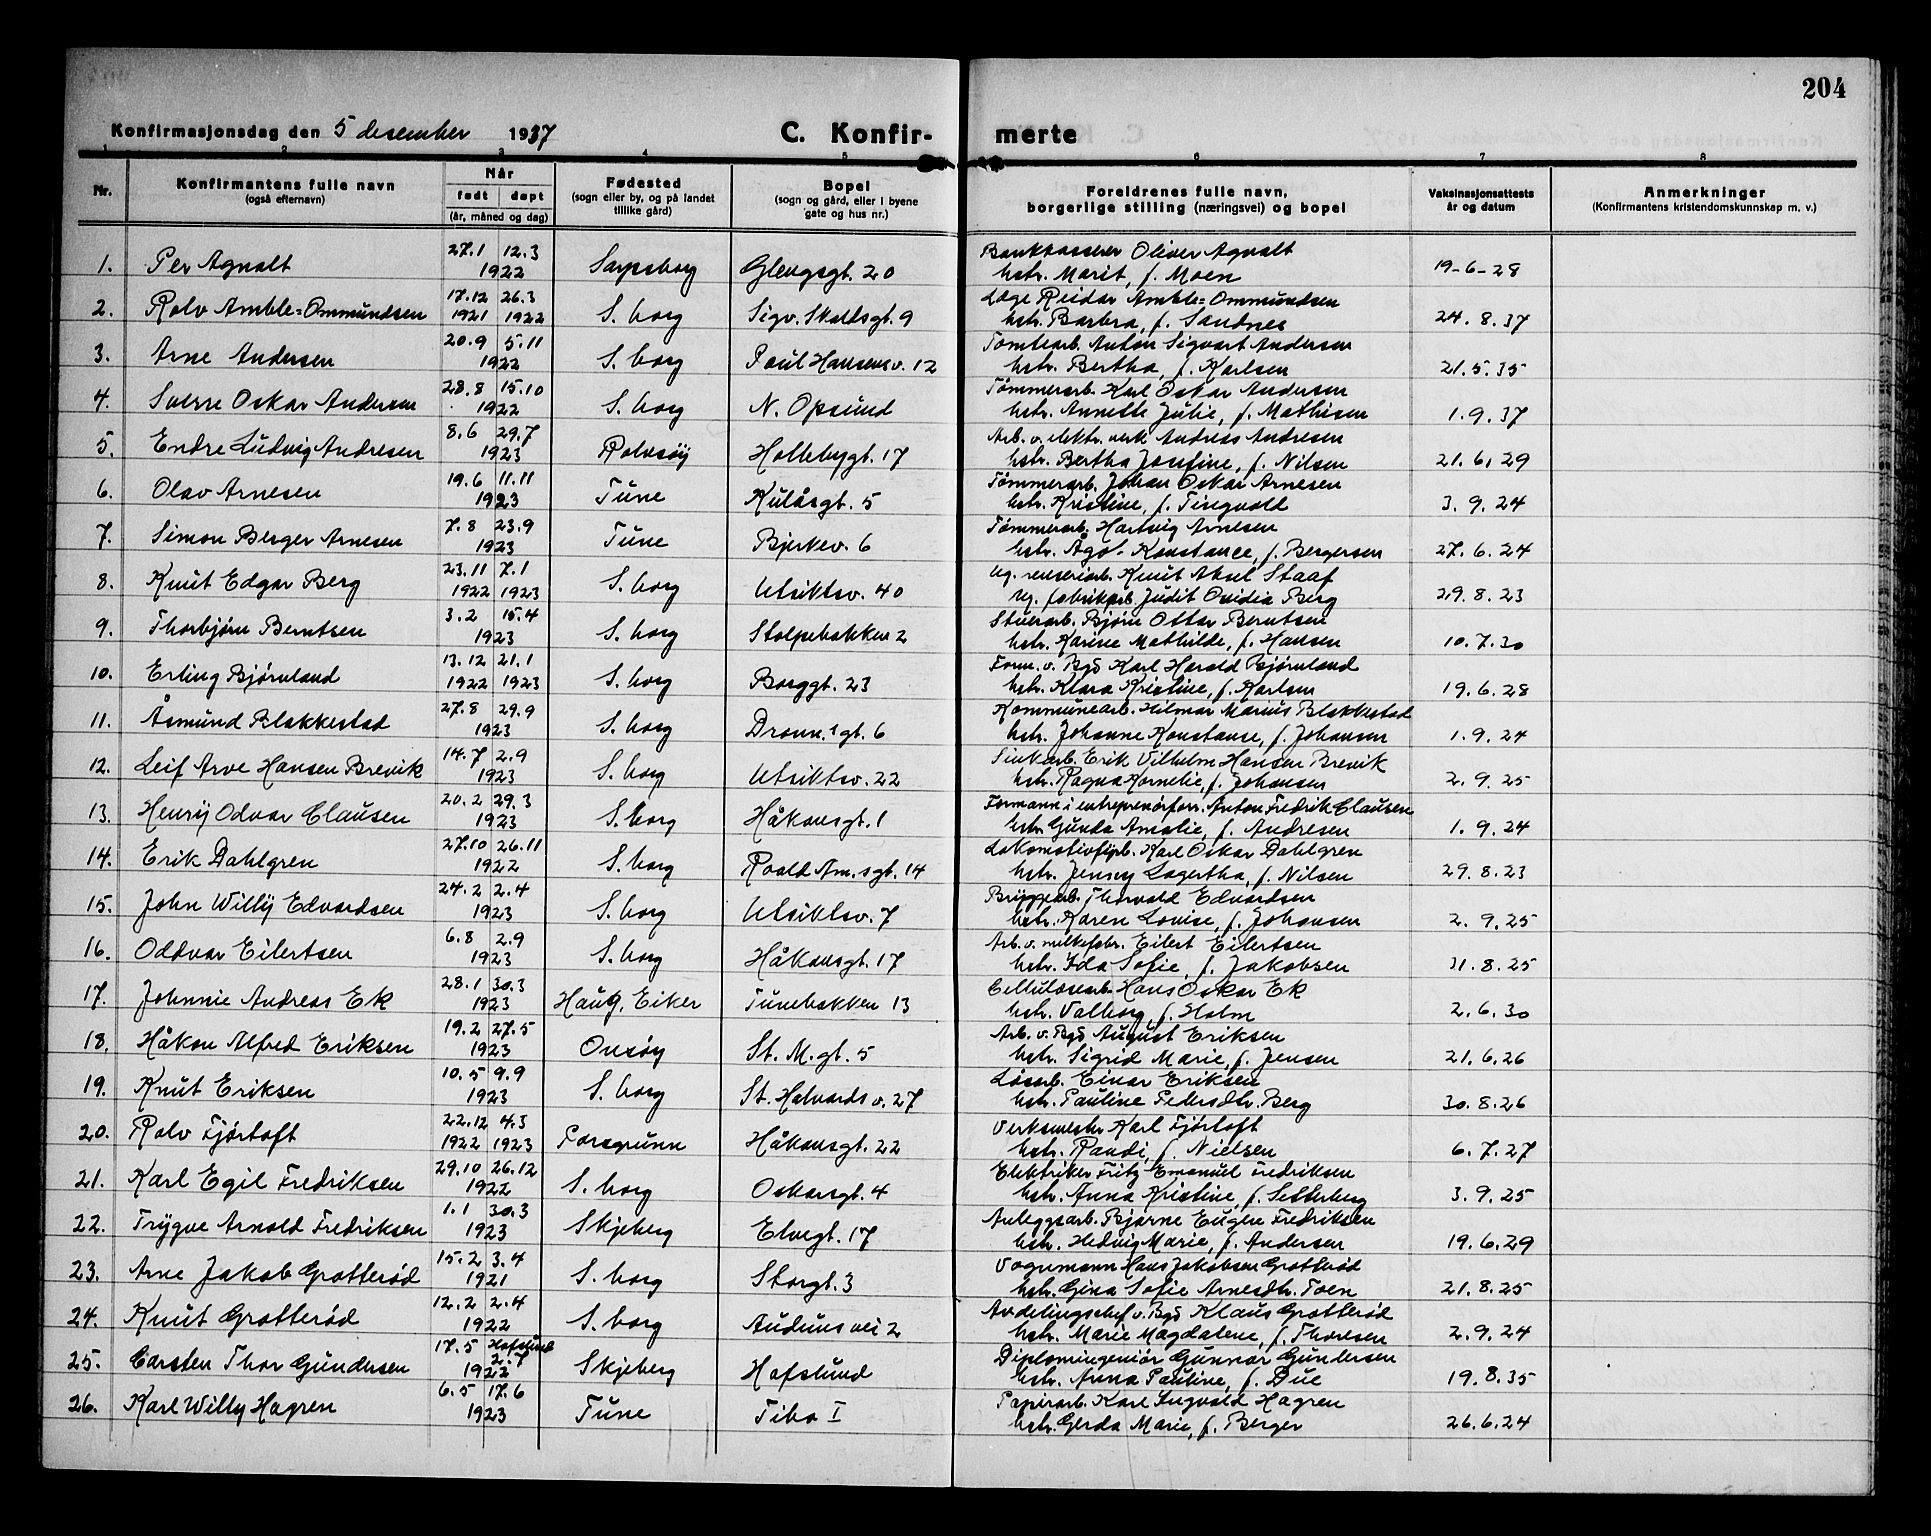 204
Konfirmasjonsdag den 5 desember 1937 C. Konfir- merte
1 2 3 4 5 6 7 8
Nr. Konfirmantens fulle navn (også efternavn) Når født døpt (år, måned og dag) Fødested (sogn eller by, og på landet tillike gård) Bopel (sogn og gård, eller i byene gate og hus nr.) Foreldrenes fulle navn, borgerlige stilling (næringsvei) og bopel Vaksinasjonsattests år og datum Anmerkninger (Konfirmantens kristendomskunnskap m. v.)
27.1 12.3 Bankkasserer Oliver Agnalt
1. Per Agnalt 1922 Sarpsborg Glengsgt. 20 hstr. Marit, f. Moen 19-6-28
17.12 26.3 Læge Reidar Amble=Ommundsen
2. Rolv Amble=Ommundsen 1921 1922 S. borg Sigv. Skaldsgt. 9 hstr. Barbra, f. Sandnes 24.8.37
20.9 5.11 Tomtearb. Anton Sigvart Andersen
3. Arne Andersen 1922 S. borg Poul Hansensv. 12 hstr. Bertha, f. Karlsen 21.5.35
28.8 15.10 Tømmerarb. Karl Oskar Andersen
4. Sverre Oskar Andersen 1922 S. borg N. Opsund hstr. Annette Julie, f. Mathisen 1.9.37
8.6 29.7 Arb. v. elektr. verk Andreas Andresen
5. Endre Ludvig Andresen 1923 Rolvsøy Hollebygt. 17 hstr. Bertha Josefine, f. Nilsen 21.6.29
19.6 11.11 Tømmerarb. Johan Oskar Arnesen
6. Olav Arnesen 1923 Tune Kulåsgt. 5 hstr. Kristine, f. Tingvold 3.9.24
7.8 23.9 Tømmerarb. Hartvig Arnesen
7. Simon Berger Arnesen 1923 Tune Bjerkev. 6 hstr. Ågot Konstance, f. Bergersen 27.6.24
23.11 7.1 Ug. renseriarb. Knut Aksel Staaf
8. Knut Edgar Berg 1922 1923 S. borg Utsiktsv. 40 Ug. fabrikarb. Judit Ovidia Berg 29.8.23
3.2 15.4 Stuerarb. Bjørn Ottar Berntsen
9. Thorbjørn Berntsen 1923 S. borg Stolpebakken 2 hstr. Karine Mathilde, f. Hansen 10.7.30
13.12 21.1 Form. v. Bgd Karl Harald Bjørnland
10. Erling Bjørnland 1922 1923 S. borg Borggt. 23 hstr. Klara Kristine, f. Karlsen 19.6.28
27.8 29.9 Kommunearb. Hilmar Marius Blakkestad
11. Åsmund Blakkestad 1923 S. borg Dronn.sgt. 6 hstr. Johanne Konstanse, f. Johansen 1.9.24
14.7 2.9 Sinkarb. Erik Vilhelm Hansen Brevik
12. Leif Arve Hansen Brevik 1923 S. borg Utsiktsv. 22 hstr. Ragna Kornelie, f. Johansen 2.9.25
20.2 29.3 Formann i entreprenørforr. Anton Fredrik Clausen
13. Henry Odvar Clausen 1923 S. borg Håkonsgt. 1 hstr. Gunda Amalie, f. Andresen 1.9.24
27.10 26.11 Lokomotivfyrb. Karl Oskar Dahlgren
14. Erik Dahlgren 1922 S. borg Roald Am.sgt. 14 hstr. Jenny Lagertha, f. Nilsen 29.8.23
24.2 2.4 Bryggearb. Thorvald Edvardsen
15. John Willy Edvardsen 1923 S. borg Utsiktsv. 7 hstr. Karen Lovise, f. Johansen 2.9.25
6.8 2.9 Arb. v. melkefabr. Eilert Eilertsen
16. Oddvar Eilertsen 1923 S. borg Håkonsgt. 17 hstr. Ida Sofie, f. Jakobsen 31.8.25
28.1 30.3 Cellulosearb. Hans Oskar Ek
17. Johnnie Andreas Ek 1923 Haug, Eiker Tunebakken 13 hstr. Valborg, f. Holm 2.6.30
19.2 27.5 Arb. v. Bgd August Eriksen
18. Håkon Alfred Eriksen 1923 Onsøy St. M. gt. 5 hstr. Sigrid Marie, f. Jensen 21.6.26
10.5 9.9 Løsarb. Einar Eriksen
19. Knut Eriksen 1923 S. borg St. Halvards v. 27 hstr. Pauline Pedersdtr. Berg 30.8.26
22.12 4.3 Verksmestr. Karl Fjørtoft
20. Rolv Fjørtoft 1922 1923 Porsgrunn Håkonsgt. 22 hstr. Randi, f. Nielsen 6.7.27
29.10 26.12 Elektriker Fritz Emanuel Fredriksen
21. Karl Egil Fredriksen 1922 S. borg Oskarsgt. 4 hstr. Anna Kristine, f. Setterberg 3.9.25
1.1 30.3 Anleggsarb. Bjarne Eugen Fredriksen
22. Trygve Arnold Fredriksen 1923 Skjeberg Elvegt. 17 hstr. Hedvig Marie, f. Andersen 19.6.29
15.2 3.4 Vognmann Hans Jakobsen Grotterød
23. Arne Jakob Grotterød 1921 S. borg Storgt. 3 hstr. Gina Sofie Arnesdtr. Toen 21.8.25
12.2 2.4 Avdelingschef v. Bgd Klaus Grotterød
24. Knut Grotterød 1922 S. borg Auduns vei 2 hstr. Marie Magdalene, f. Thoresen 2.9.24
17.5 Hafslund 2.7 Diplomingeniør Gunnar Gundersen
25. Carsten Thor Gundersen 1922 Skjeberg Hafslund hstr. Anna Pauline, f. Due 19.8.35
6.5 17.6 Papirarb. Karl Ingvald Hagren
26. Karl Willy Hagren 1923 Tune Tibo I hstr. Gerda Marie, f. Berger 26.6.24